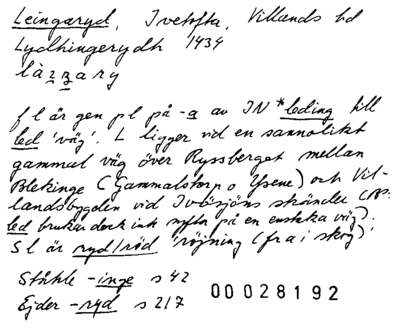 Leingaryd, Ivetofta, Villands hd
Lydhingerydh 1434
làzzary
f l är gen pl på -a av IN *leding till
led 'väg'. L ligger vid en sannolikt
gammal väg över Ryssberget mellan
Blekinge (Gammalstorp o Ysene) och Vil-
landsbygden vid Ivösjöns stränder
led brukar dock ink syfta på en enskilda väg);
s l är ryd/röd 'röjning (fra i skog)'
Ståhle -inge s 42
Ejder -ryd s 217
00028192